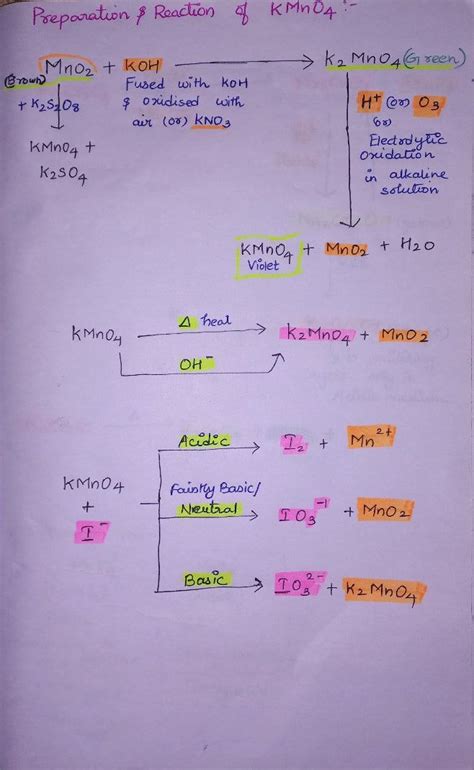 Preparation & Reaction of KMnO4 :-
MnO2 + KOH → K2MnO4 (Green)
(Brown)
Fused with KOH
& oxidised with
air (or) KNO3
+ K2S2O8
KMnO4 +
K2SO4
H+ (or) O3
(or)
Electrolytic
Oxidation
in alkaline
solution
KMnO4 + MnO2 + H2O
Violet
Δ heat
KMnO4 → K2MnO4 + MnO2
OH-
Acidic → I2 + Mn2+
KMnO4
+
I-
Faintly Basic/
Neutral → IO3-1 + MnO2
Basic → IO3 2- + K2MnO4